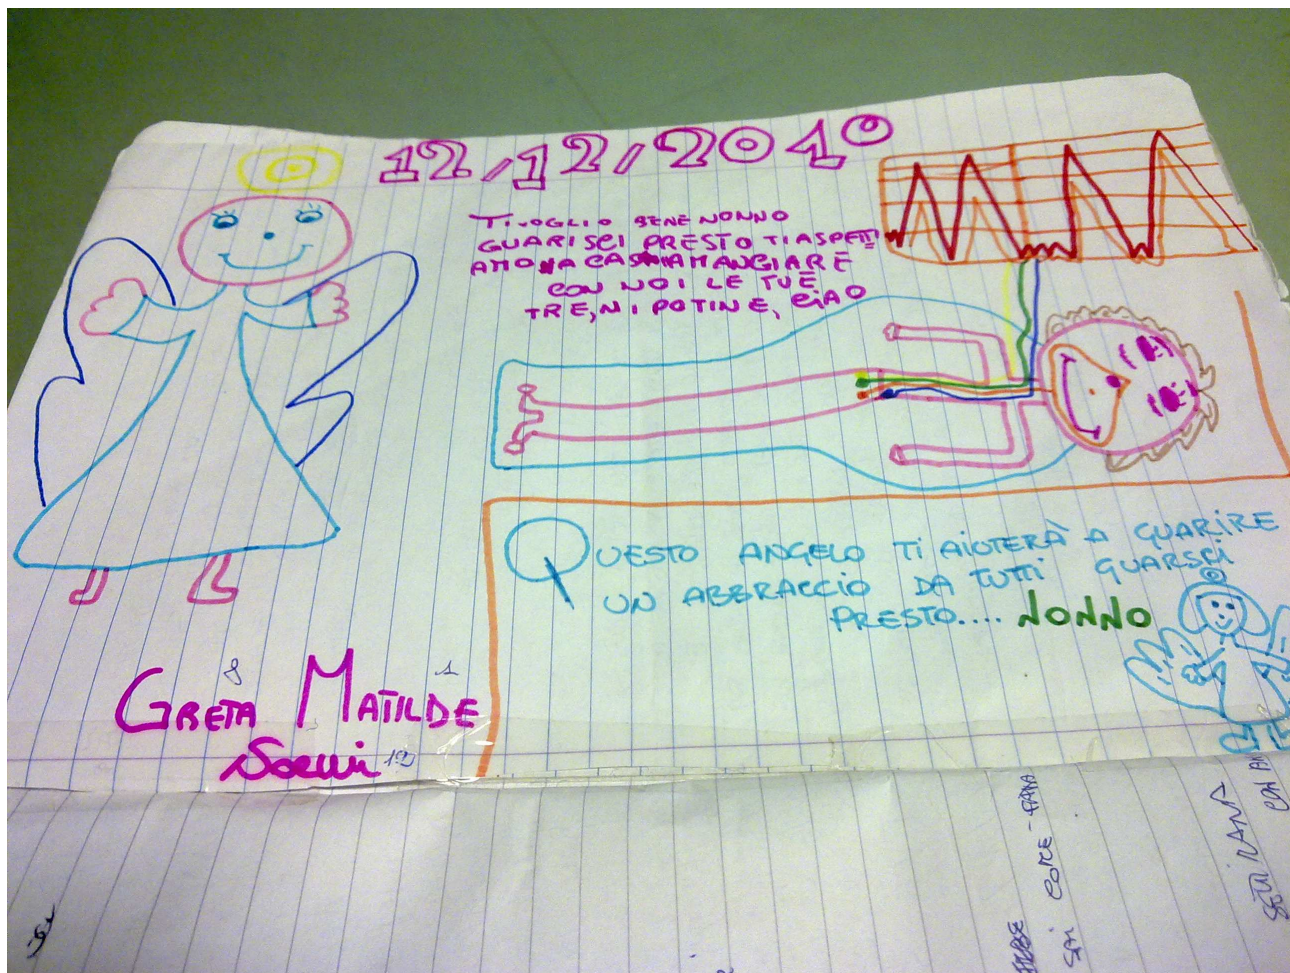 12/12/2010
TI VOGLIO BENE NONNO
GUARISCI PRESTO TI ASPETTI
AMO A CASA A MANGIARE
CON NOI LE TUE
TRE, NIPOTINE, CIAO
QUESTO ANGELO TI AIUTERÀ A GUARIRE
UN ABBRACCIO DA TUTTI GUARSCI
PRESTO.... NONNO
8 1
GRETA MATILDE
Noemi 12
SAI COME - FARA
CON